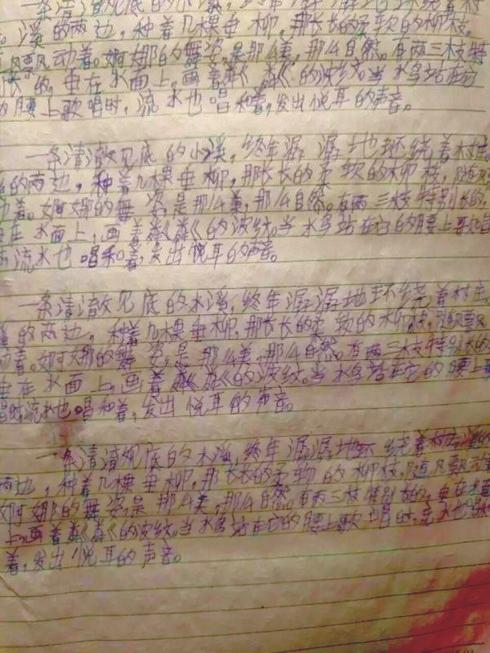 一条清澈见底的小溪,终年潺潺地环绕着村
溪的两边,种着几棵垂柳,那长长的柔软的柳枝,
风飘动着。婀娜的舞姿,是那么美,那么自然。有两三枝特
长的,垂在水面上,画着粼粼的波纹。当水鸟站在它
的腰上歌唱时,流水也唱和着,发出悦耳的声音。
一条清澈见底的小溪,终年潺潺地环绕着村庄。
的两边,种着几棵垂柳,那长长的柔软的柳枝,随风
动着。婀娜的舞姿,是那么美,那么自然。有两三枝特别长的,
在水面上,画着粼粼的波纹。当水鸟站在它的腰上歌唱
流水也唱和着,发出悦耳的声音。
一条清澈见底的水溪,终年潺潺地环绕着村庄。
的两边,种着几棵垂柳,那长长的柔软的柳枝,随风飘
动着。婀娜的舞姿,是那么美,那么自然。有两三枝特别长的
垂在水面上,画着粼粼的波纹。当水鸟站在它的腰上歌
唱时流水也唱和着,发出悦耳的声音。
一条清清见底的水溪,终年潺潺地环绕着村庄。溪的
两边,种着几棵垂柳,那长长的柔软的柳枝,随风飘动
婀娜的舞姿,是那么美,那么自然。有两三枝特别长的,垂在水面
上,画着粼粼的波纹。当水鸟站在它的腰上歌唱时,流水也唱
着,发出悦耳的声音。